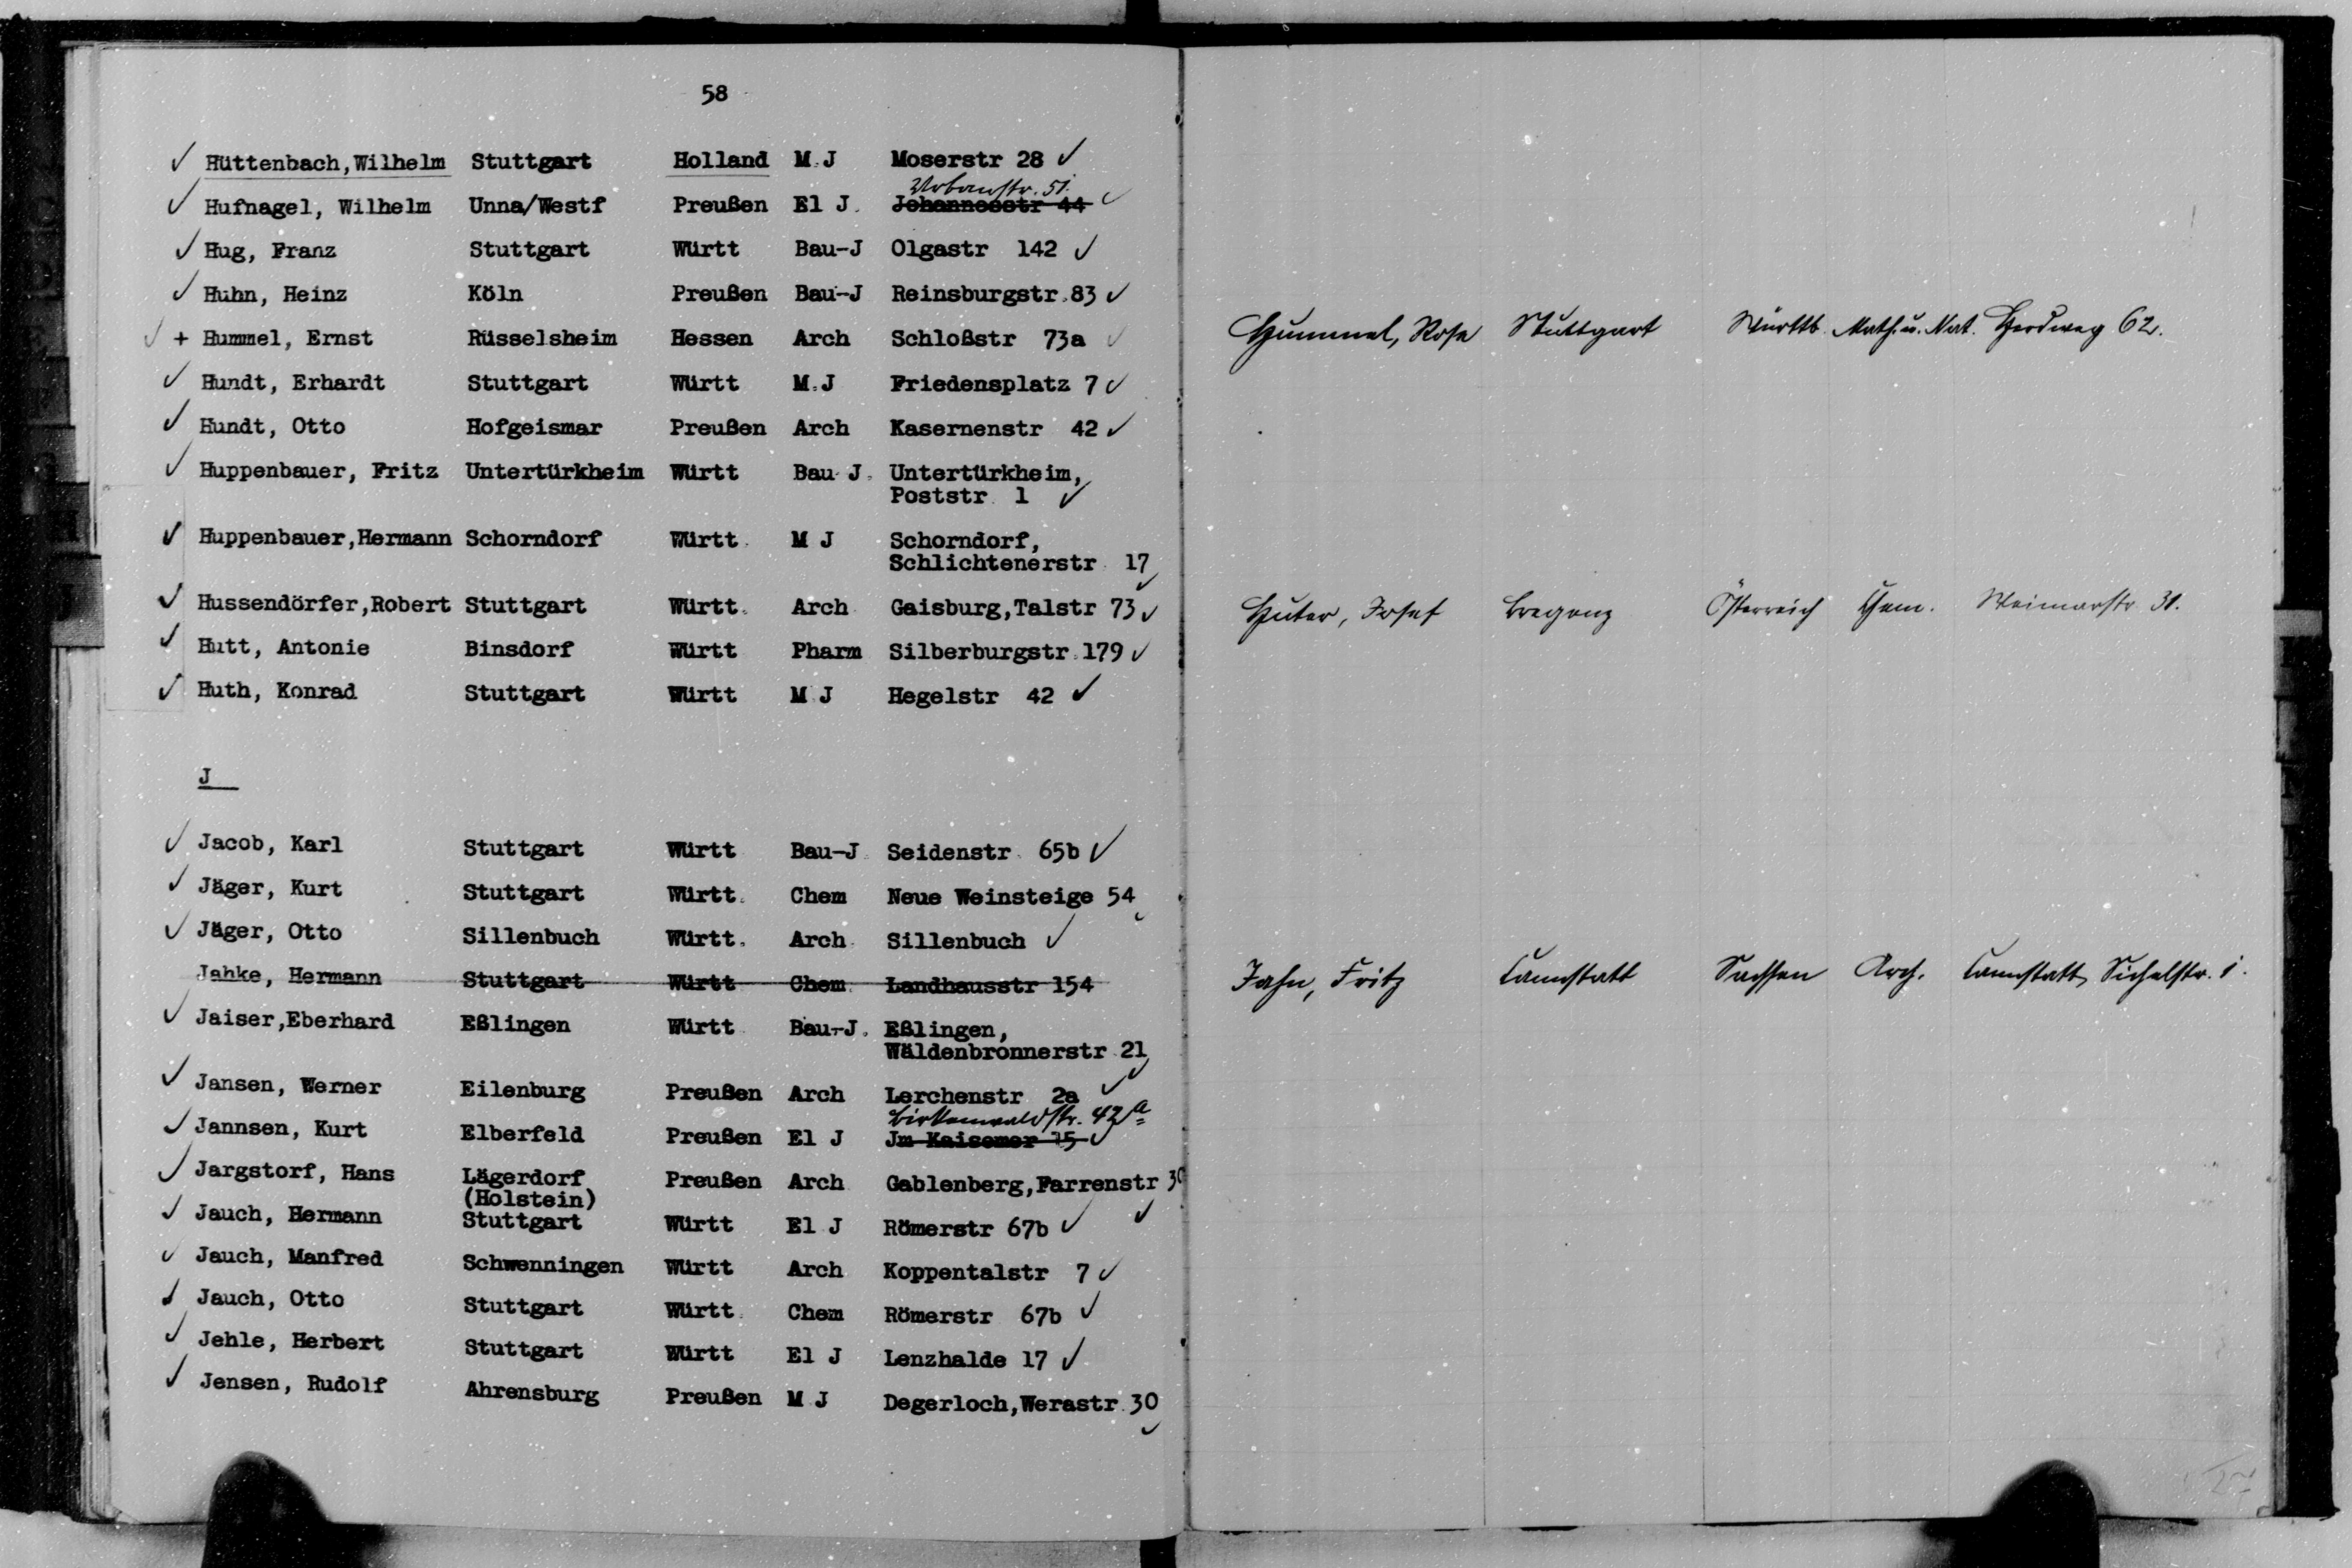 58
✓ Hüttenbach,Wilhelm Stuttgart Holland M.J Moserstr 28 ✓
Urbanstr. 51.
✓ Hufnagel, Wilhelm Unna/Westf Preußen El J. Johannesstr 44 ✓
✓ Hug, Franz Stuttgart Württ Bau-J Olgastr 142 ✓
✓ Huhn, Heinz Köln Preußen Bau-J Reinsburgstr.83 ✓
✓ + Hummel, Ernst Rüsselsheim Hessen Arch Schloßstr 73a ✓
✓ Hundt, Erhardt Stuttgart Württ M.J Friedensplatz 7 ✓
✓ Hundt, Otto Hofgeismar Preußen Arch Kasernenstr 42 ✓
✓ Huppenbauer, Fritz Untertürkheim Württ Bau J. Untertürkheim,
Poststr 1 ✓
✓ Huppenbauer,Hermann Schorndorf Württ. M J Schorndorf,
Schlichtenerstr 17 ✓
✓ Hussendörfer,Robert Stuttgart Württ. Arch Gaisburg,Talstr 73 ✓
✓ Hutt, Antonie Binsdorf Württ Pharm Silberburgstr.179 ✓
✓ Huth, Konrad Stuttgart Württ M J Hegelstr 42 ✓
J
✓ Jacob, Karl Stuttgart Württ Bau-J Seidenstr. 65b ✓
✓ Jäger, Kurt Stuttgart Württ. Chem Neue Weinsteige 54 ✓
✓ Jäger, Otto Sillenbuch Württ. Arch Sillenbuch ✓
Jahke, Hermann Stuttgart Württ Chem Landhausstr 154
✓ Jaiser,Eberhard Eßlingen Württ Bau-J. Eßlingen,
Wäldenbronnerstr 21 ✓
✓ Jansen, Werner Eilenburg Preußen Arch Lerchenstr 2a ✓
Birkenwaldstr. 42a
✓ Jannsen, Kurt Elberfeld Preußen El J Jm Kaisemer 15 ✓
✓ Jargstorf, Hans Lägerdorf Preußen Arch Gablenberg,Farrenstr 30 ✓
(Holstein)
✓ Jauch, Hermann Stuttgart Württ El J Römerstr 67b ✓
✓ Jauch, Manfred Schwenningen Württ Arch Koppentalstr 7 ✓
✓ Jauch, Otto Stuttgart Württ Chem Römerstr 67b ✓
✓ Jehle, Herbert Stuttgart Württ El J Lenzhalde 17 ✓
✓ Jensen, Rudolf Ahrensburg Preußen M J Degerloch,Werastr 30 ✓
Hummel, Rosa Stuttgart Württb. Math. u. Nat. Herdweg 62.
Huter, Josef Bregenz Österreich Chem. Weimarstr. 31.
Jahn, Fritz Cannstatt Sachsen Arch. Cannstatt, Sichelstr. 1.